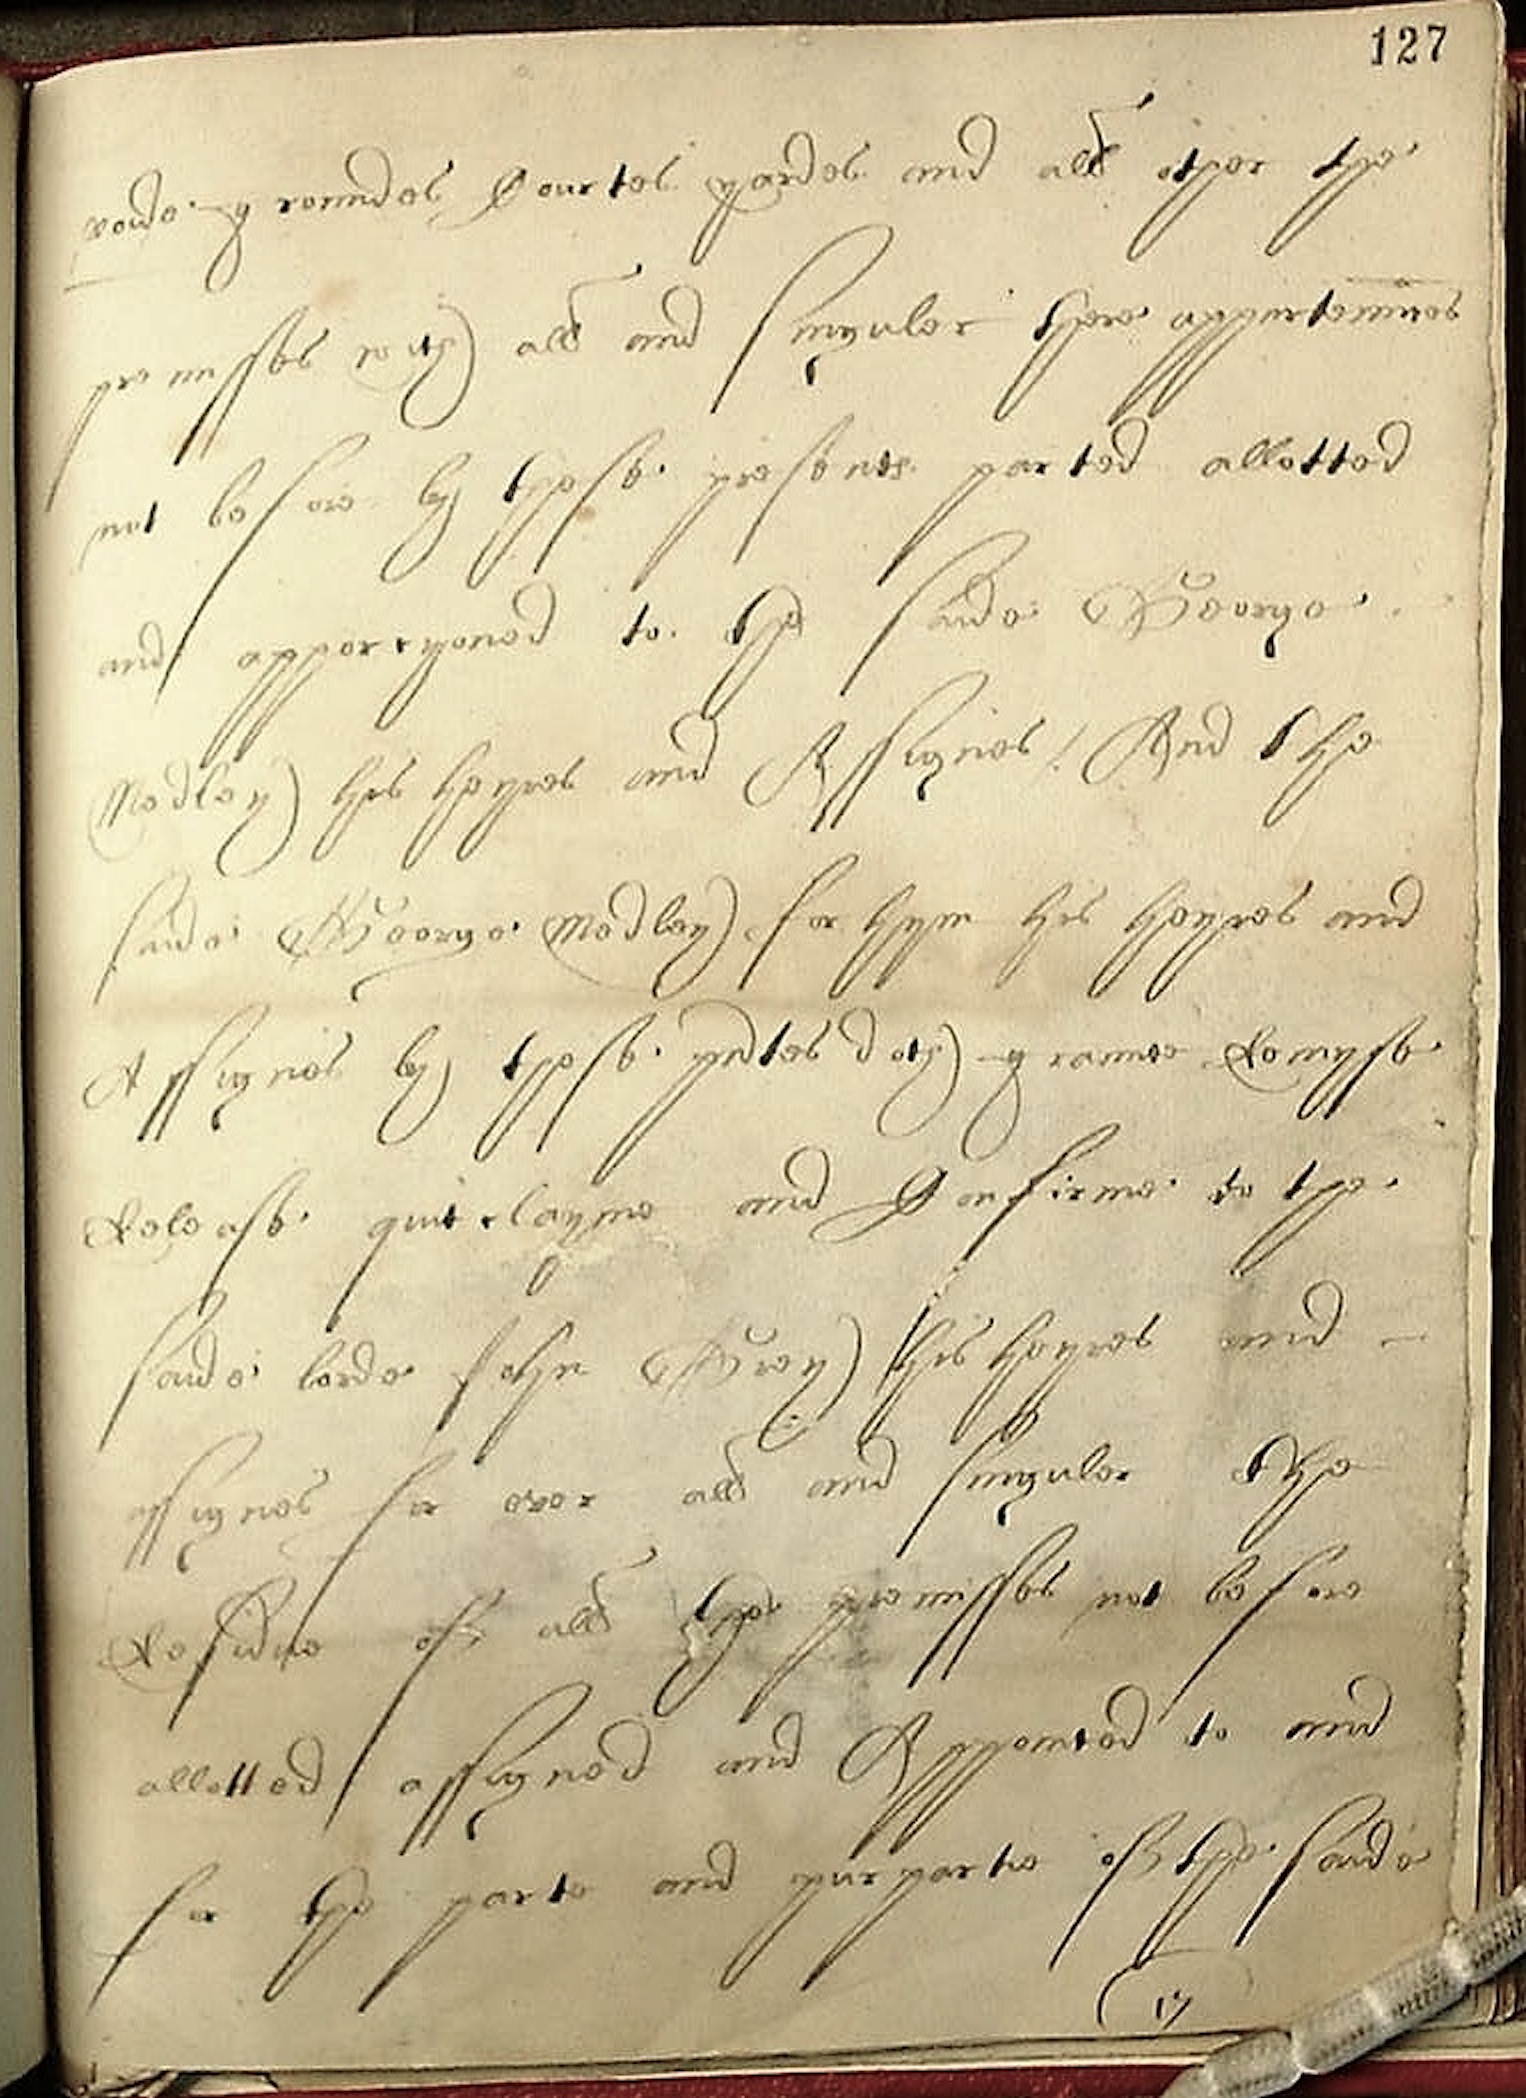 127
voide groundes Courtes yardes and all other the
premisses with all and singuler there appurtennces
not before by these presents parted allotted
and apporcyoned to the saide George
Medley his heyres and Assignes / And The
saide George Medley for hym his heyres and
Assignes by these pñtes doth graunte Remyse
Release quit clayme and Confirme to the
saide lorde John Grey his heyres and
assignes for ever all and singuler The
Residue of all the premisses not before
allotted assigned and Appointed to and
for the parte and purpartie of the saide
17